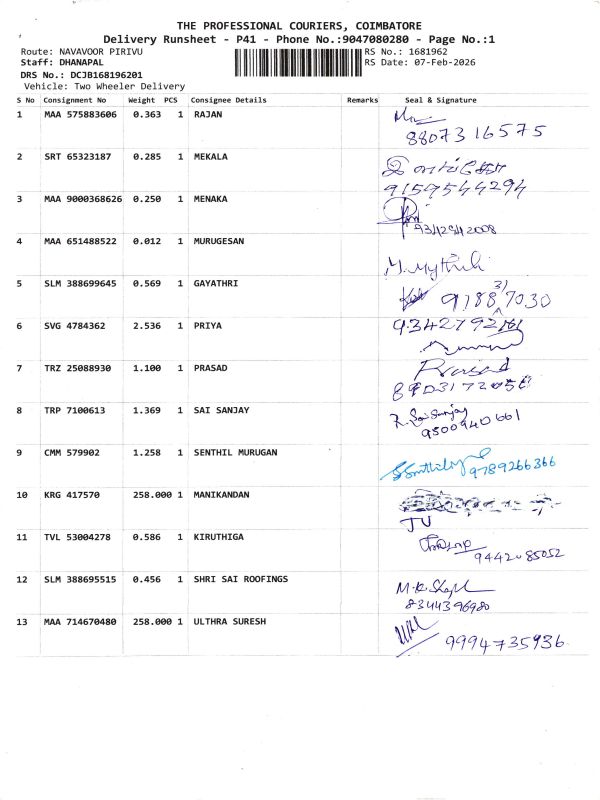 THE PROFESSIONAL COURIERS, COIMBATORE
Delivery Runsheet - P41 - Phone No.:9047080280 - Page No.:1
Route: NAVAVOOR PIRIVU RS No.: 1681962
Staff: DHANAPAL RS Date: 07-Feb-2026
DRS No.: DCJB168196201
Vehicle: Two Wheeler Delivery
S No Consignment No Weight PCS Consignee Details Remarks Seal & Signature
1 MAA 575883606 0.363 1 RAJAN
8807316575
2 SRT 65323187 0.285 1 MEKALA
9159544294
3 MAA 9000368626 0.250 1 MENAKA
9342942008
4 MAA 651488522 0.012 1 MURUGESAN
M. Mythili
5 SLM 388699645 0.569 1 GAYATHRI
6 SVG 4784362 2.536 1 PRIYA
7 TRZ 25088930 1.100 1 PRASAD
Prasad
8 TRP 7100613 1.369 1 SAI SANJAY
R. Sai Sanjay
9500940661
9 CMM 579902 1.258 1 SENTHIL MURUGAN
9789266366
10 KRG 417570 258.000 1 MANIKANDAN
11 TVL 53004278 0.586 1 KIRUTHIGA
9442085052
12 SLM 388695515 0.456 1 SHRI SAI ROOFINGS
8344396980
13 MAA 714670480 258.000 1 ULTHRA SURESH
9994735936